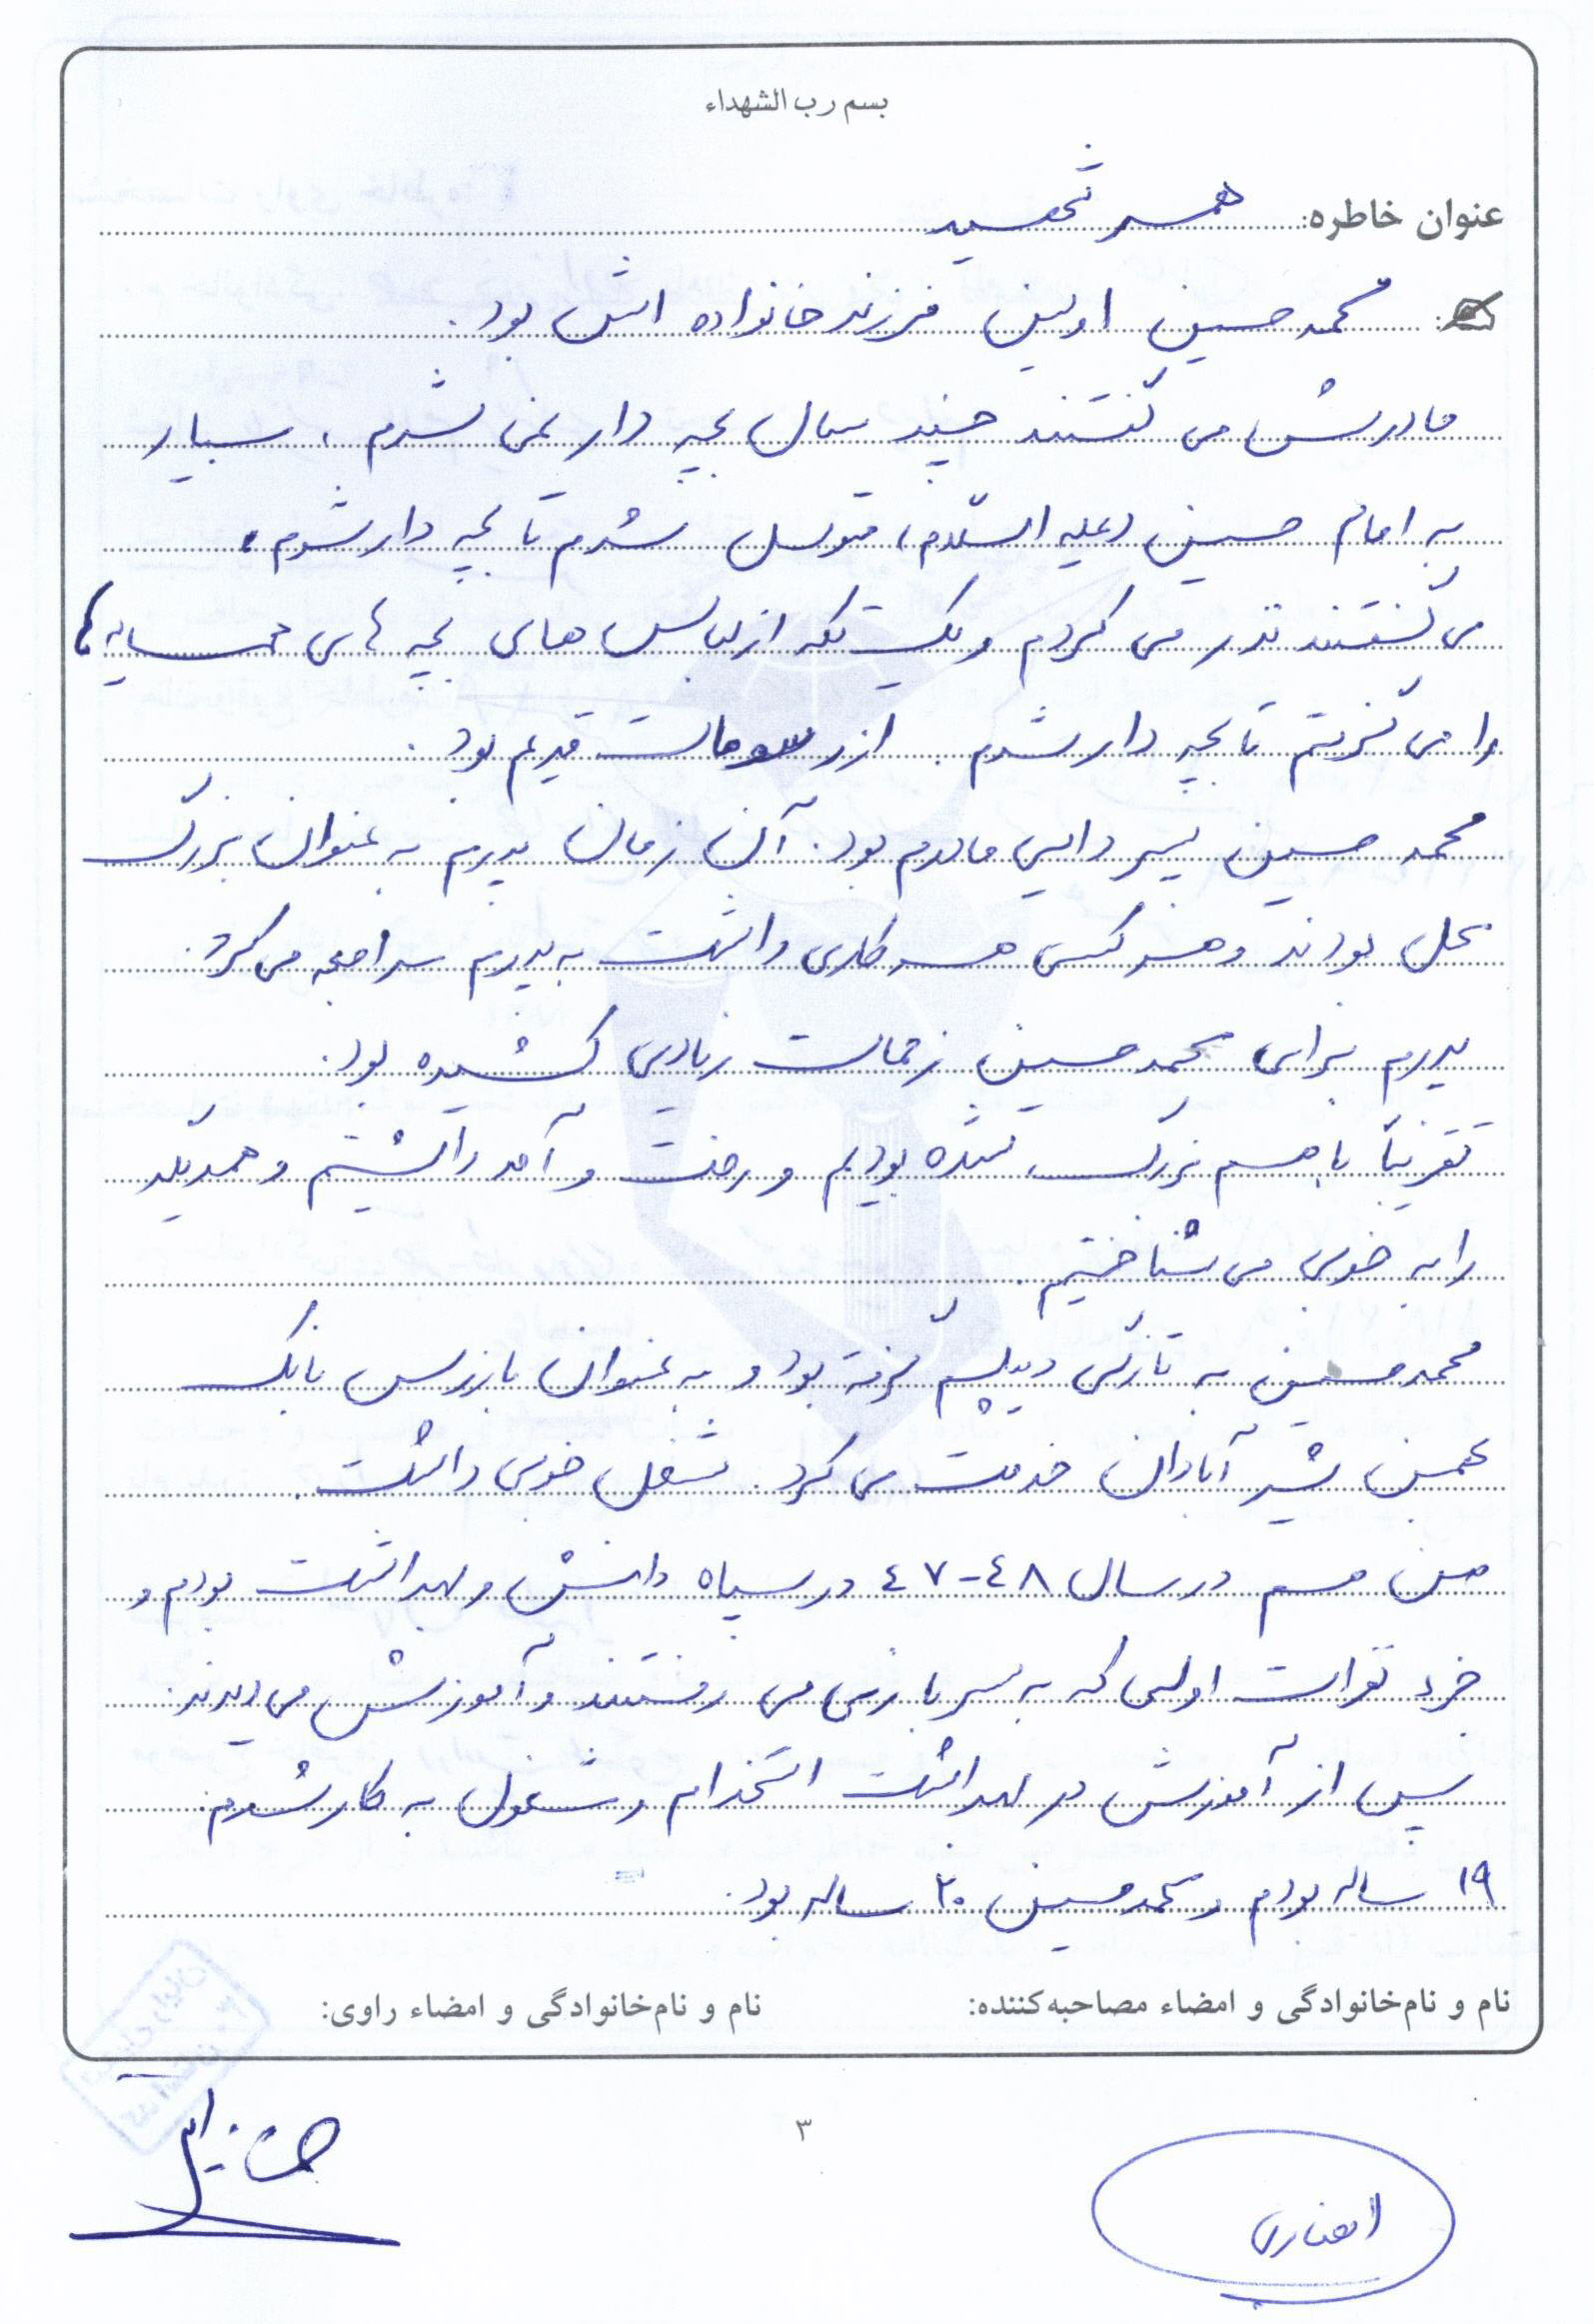 بسم رب الشهداء
عنوان خاطره: همسر شهید
محمد حسین اولین فرزند خانواده اش بود.
مادرش می گفتند چند سال بچه دار نمی شدم، بسیار
به امام حسین (علیه السّلام) متوسل شدم تا بچه دار شوم،
می گفتند نذر می کردم و یک تکه از لباس های بچه های همسایه ها
را می گرفتم تا بچه دار شوم. از رسومات قدیم بود.
محمد حسین پسر دایی مادرم بود. آن زمان پدرم به عنوان بزرگ
محل بودند و هر کس هر کاری داشت به پدرم مراجعه می کرد.
پدرم برای محمد حسین زحمات زیادی کشیده بود.
تقریباً با هم بزرگ شده بودیم و رفت و آمد داشتیم و همدیگر
را به خوبی می شناختیم.
محمد حسین به تازگی دیپلم گرفته بود و به عنوان بازرس بانک
بهمن شیر آبادان خدمت می کرد. شغل خوبی داشت.
من هم در سال ۴۸-۴۷ در سپاه دانش و بهداشت بودم و
جزء نفرات اولی که به سربازی می رفتند و آموزش می دیدند.
پس از آموزش در بهداشت استخدام و مشغول به کار شدم.
۱۹ ساله بودم و محمد حسین ۲۰ ساله بود.
نام و نام‌خانوادگی و امضاء مصاحبه‌کننده: نام و نام‌خانوادگی و امضاء راوی:
۳